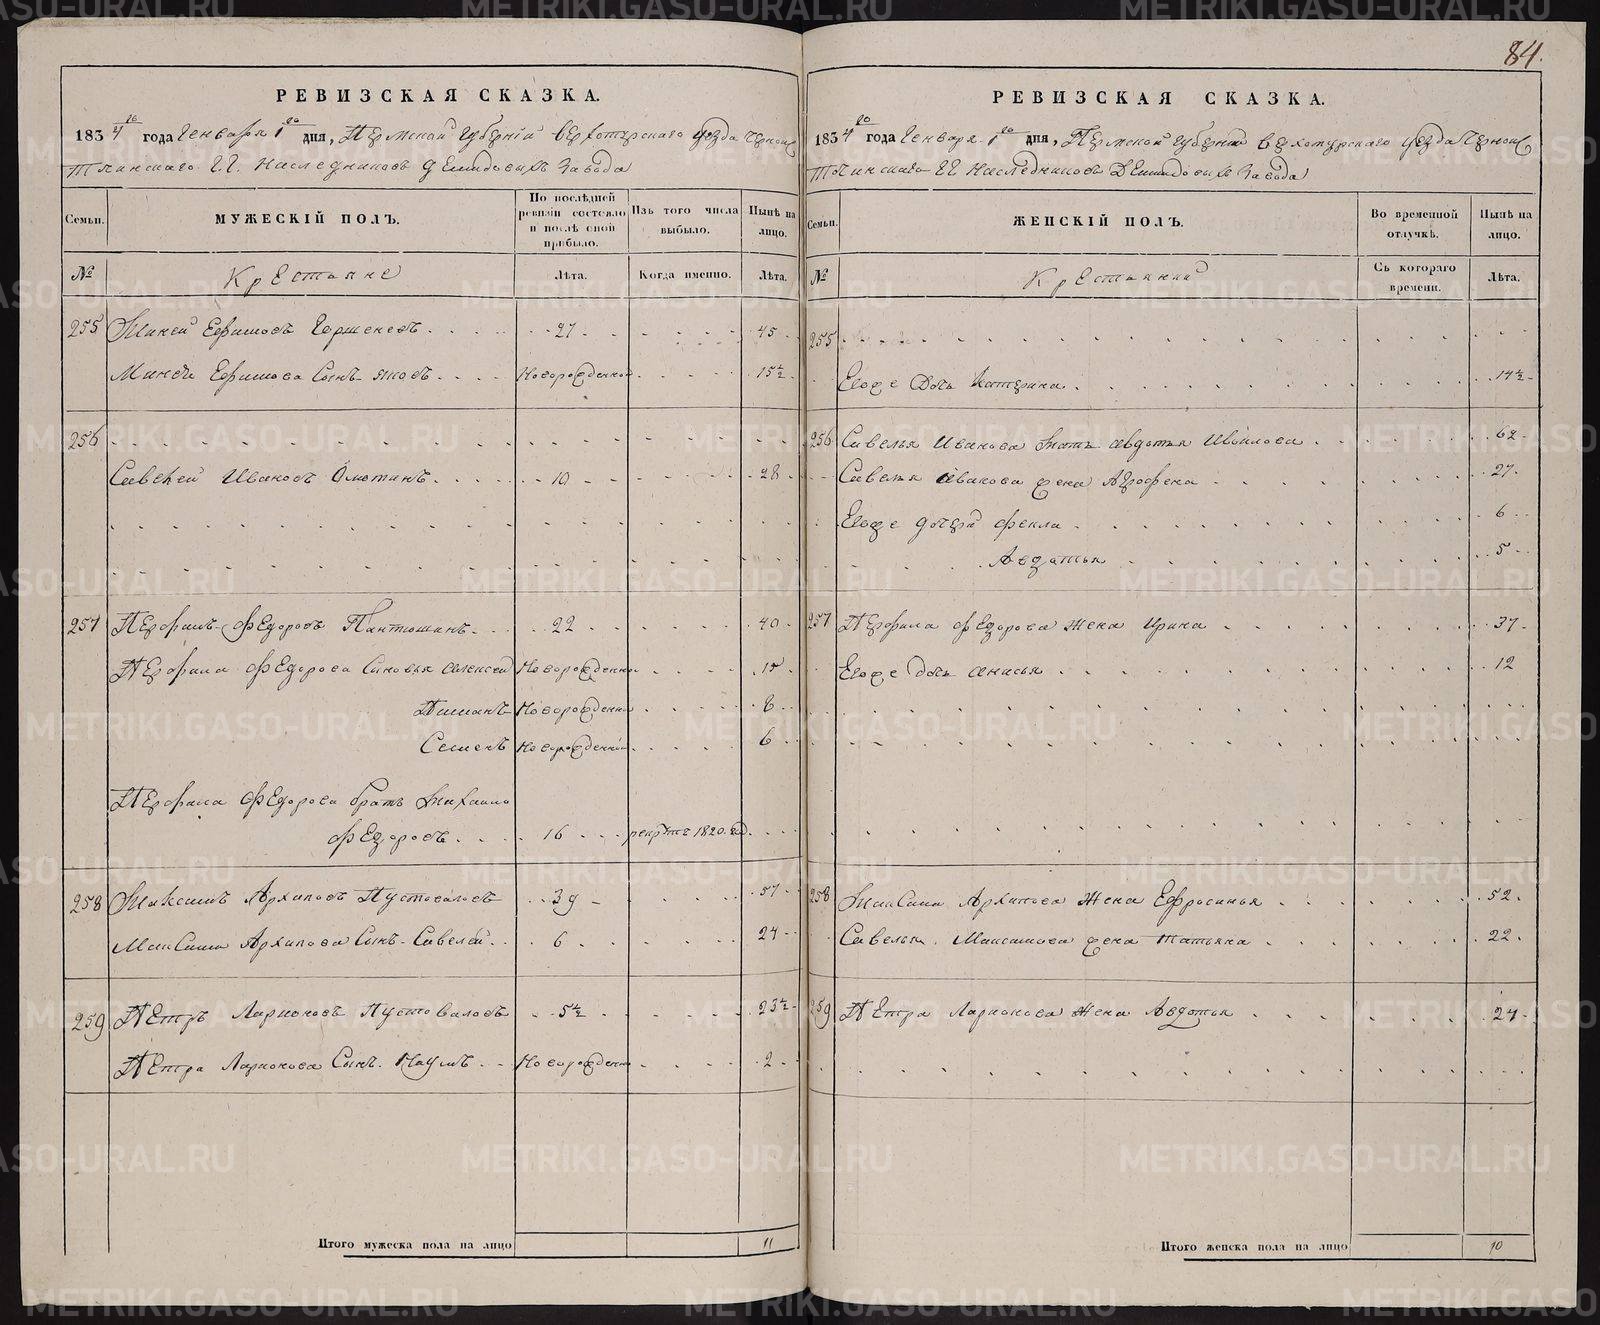 84.
РЕВИЗСКАЯ СКАЗКА.
1834 го года Генваря 1 го дня, Пермской Губернiи Верхотурскаго уезда Черноис
точинскаго Г.Г. Наследниковъ Демидовыхъ Завода
Семьи. МУЖЕСКІЙ ПОЛЪ. По послѣдней ревизіи состояло и послѣ оной прибыло. Изъ того числа выбыло. Нынѣ на лицо.
№ Крестьяне Лѣта. Когда именно. Лѣта.
255 Ефимовъ 27 45
Ефимова Сынъ Яковъ Новорожденной 15½
256
Савелей Ивановъ 10 28
257 Перфилъ Федоровъ Пантюшинъ 22 40
Перфила Федорова Сыновья Алексей Новорожденны 15
Новорожденны 8
Семенъ Новорожденны 6
Перфила Федорова братъ Михаило
Федоровъ 16 рекрутъ 1820 год
258 Максимъ Архиповъ Пустоваловъ 39 57
Максима Архипова Сынъ Савелей 6 24
259 Петръ Ларионовъ Пустоваловъ 5½ 23½
Петра Ларионова Сынъ Наумъ Новорожденны 2
Итого мужеска пола на лицо 11
РЕВИЗСКАЯ СКАЗКА.
1834 го года Генваря 1 го дня, Пермской Губернiи Верхотурскаго уезда Черноис
точинскаго Г.Г. Наследниковъ Демидовыхъ Завода
Семьи. ЖЕНСКІЙ ПОЛЪ. Во временной отлучкѣ. Нынѣ на лицо.
№ Съ котораго времени. Лѣта.
255
Егоже Дочь Катерина 14½
256 Савелья Иванова мать Авдотья 62
Савелья Иванова жена Агрофена 27
Егоже дочери Фекла 6
Авдотья 5
257 Перфила Федорова жена Ирина 37
Егоже дочь Анисья 12
258 Максима Архипова жена Ефросинья 52
Савелья Максимова жена Татьяна 22
259 Петра Ларионова жена Авдотья 24
Итого женска пола на лицо 10
METRIKI.GASO-URAL.RU